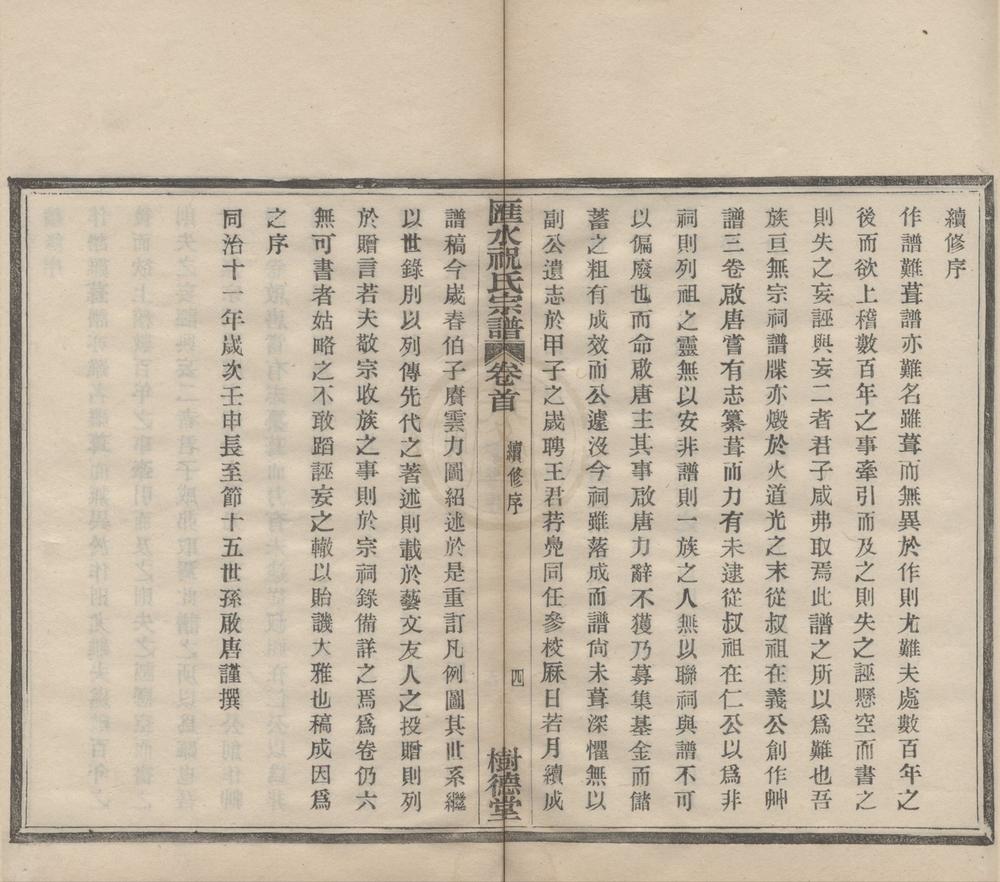 續修序
作譜難葺譜亦難名雖葺而無異於作則尤難夫處數百年之
後而欲上稽數百年之事牽引而及之則失之誣懸空而書之
則失之妄誣與妄二者君子咸弗取焉此譜之所以為難也吾
族亘無宗祠譜牒亦燬於火道光之末從叔祖在義公創作艸
譜三卷啟唐嘗有志纂葺而力有未逮從叔祖在仁公以為非
祠則列祖之靈無以安非譜則一族之人無以聯祠與譜不可
以偏廢也而命啟唐主其事啟唐力辭不獲乃募集基金而儲
蓄之粗有成效而公遽沒今祠雖落成而譜尚未葺深懼無以
副公遺志於甲子之歲聘王君若鳧同任參校厤日若月續成
匯水祝氏宗譜 卷首 續修序 四 樹德堂
譜稿今歲春伯子賡雲力圖紹述於是重訂凡例圖其世系繼
以世錄別以列傳先代之著述則載於藝文友人之投贈則列
於贈言若夫敬宗收族之事則於宗祠錄備詳之焉為卷仍六
無可書者姑略之不敢蹈誣妄之轍以貽譏大雅也稿成因為
之序
同治十一年歲次壬申長至節十五世孫啟唐謹撰